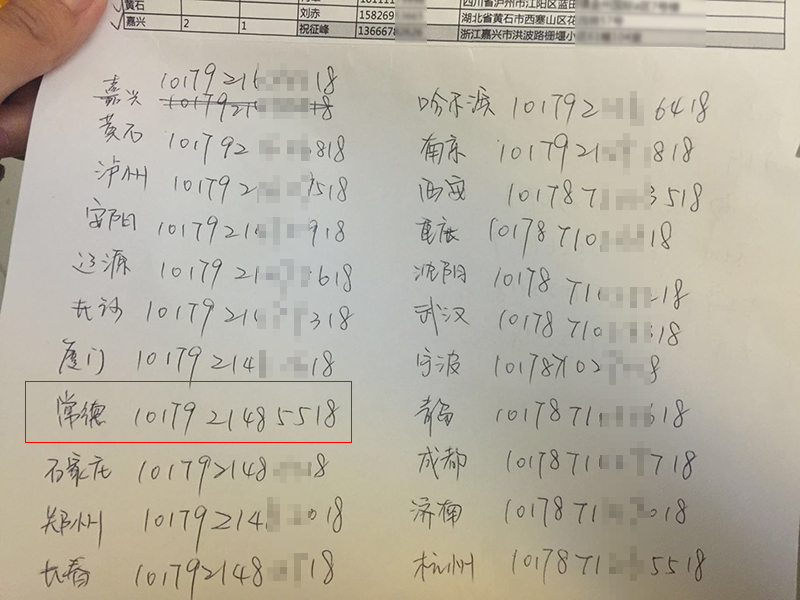 黄石
刘赤 15826 湖北省黄石市西塞山区花
嘉兴 2 1 祝征峰 13666 浙江嘉兴市洪波路栅堰小
嘉兴 1017921 18
黄石 101792 818
泸州 101792 518
安阳 1017921 918
辽源 1017921 618
长沙 1017921 318
厦门 10179214 18
常德 1017921485518
石家庄 101792148 8
郑州 10179214 018
长春 101792148 18
哈尔滨 101792 6418
南京 1017921 818
西安 101787 3518
重庆 10178710 18
沈阳 1017871 18
武汉 10178710 318
宁波 10178702 8
青岛 1017871 618
成都 1017871 718
济南 1017871 018
杭州 1017871 5518